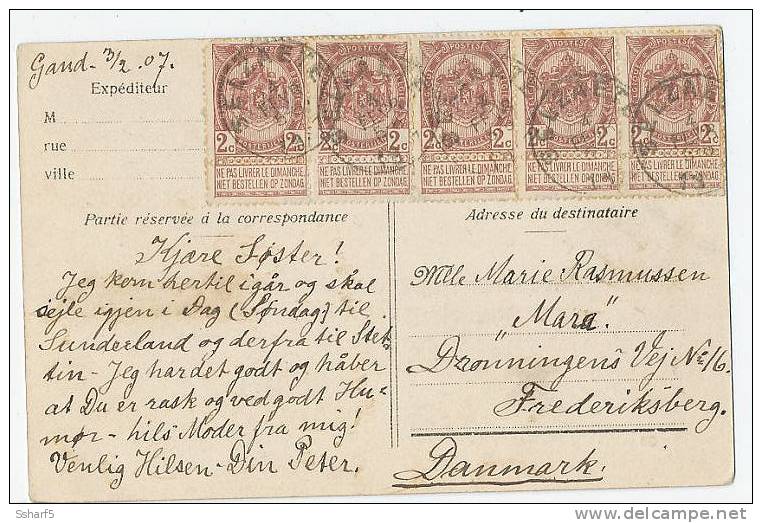 Gand - 3/2 .07.
Expéditeur
M
rue
ville
POSTES POSTES POSTES POSTES POSTES
2c 2c 2c 2c 2c 2c 2c 2c 2c 2c
NE PAS LIVRER LE DIMANCHE NE PAS LIVRER LE DIMANCHE NE PAS LIVRER LE DIMANCHE NE PAS LIVRER LE DIMANCHE NE PAS LIVRER LE DIMANCHE
NIET BESTELLEN OP ZONDAG NIET BESTELLEN OP ZONDAG NIET BESTELLEN OP ZONDAG NIET BESTELLEN OP ZONDAG NIET BESTELLEN OP ZONDAG
SELZAETE
Partie réservée à la correspondance
Kjære Søster!
Jeg kom hertil igår og skal
sejle igjen i Dag (Søndag) til
Sunderland og derfra til Stet-
tin - Jeg har det godt og håber
at Du er rask og ved godt Hu-
mør - hils Moder fra mig!
Venlig Hilsen - Din Peter.
Adresse du destinataire
Mlle Marie Rasmussen
"Mara".
Dronningens Vej No 16.
Frederiksberg.
Danmark.
Ssharf5
delcampe.net